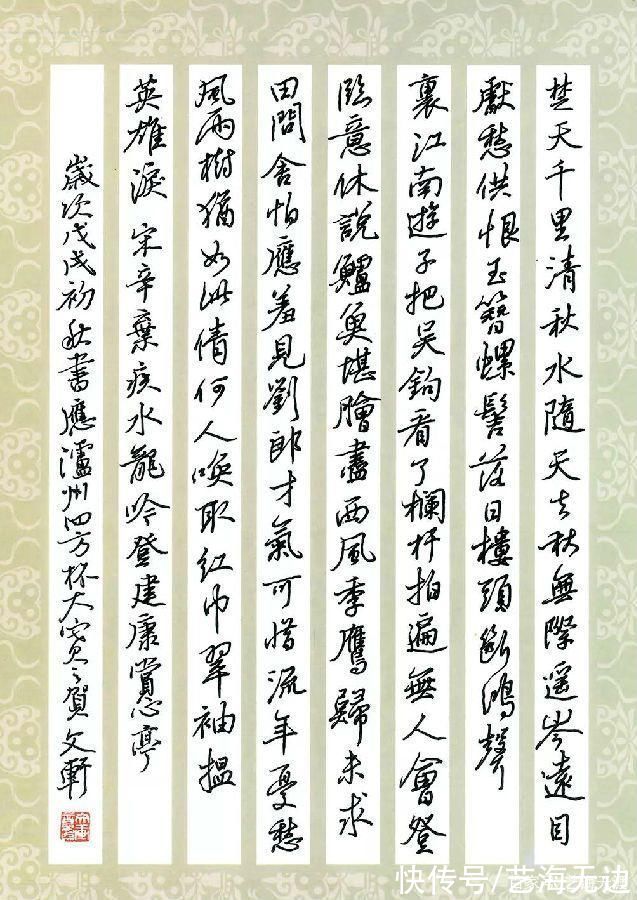 楚天千里清秋水隨天去秋無際遥岑遠目
獻愁供恨玉簪螺髻落日樓頭斷鴻聲
裏江南遊子把吴鉤看了欄杆拍遍無人會登
臨意休說鱸魚堪膾盡西風季鷹歸未求
田問舍怕應羞見劉郎才氣可惜流年憂愁
風雨樹猶如此倩何人唤取紅巾翠袖揾
英雄淚 宋辛棄疾水龍吟登建康賞心亭
歲次戊戌初秋書應瀘州四方杯大賽賀文軒
快传号/艺海无边